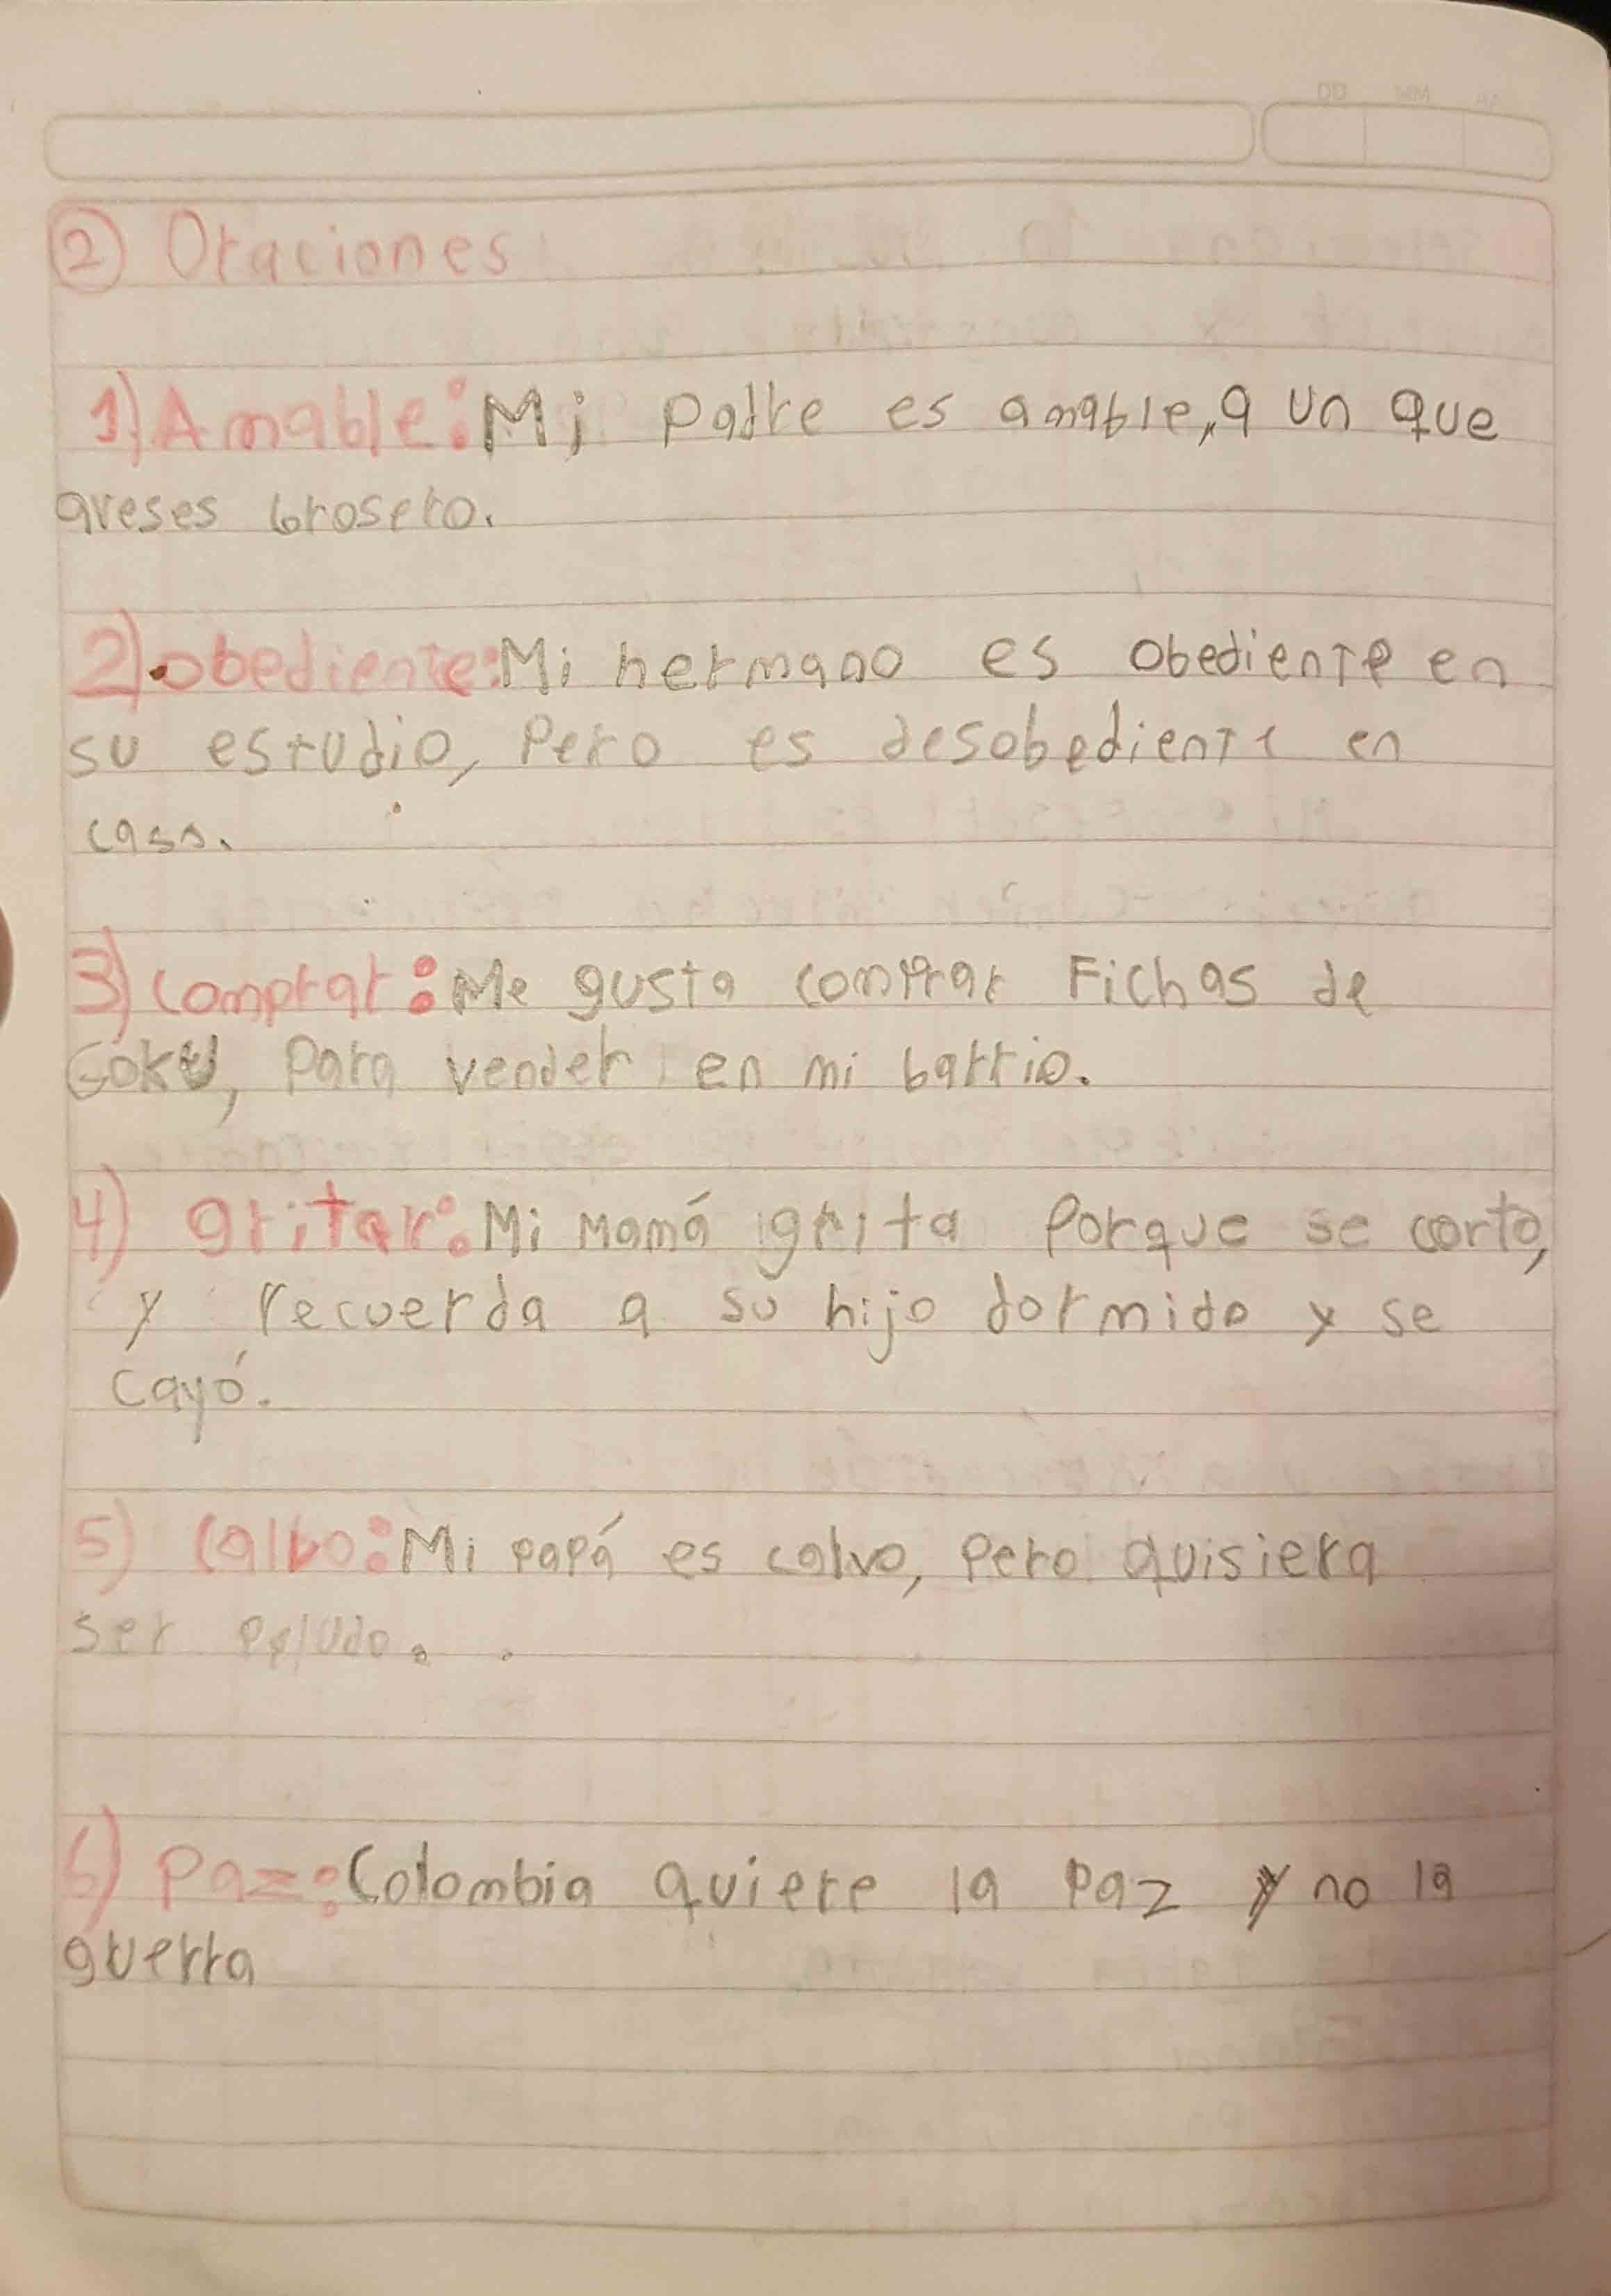 DD MM AA
② Oraciones
1) Amable: Mi padre es amable, a un que
aveses Grosero.
2) obediente: Mi hermano es obediente en
su estudio, Pero es desobediente en
casa.
3) comprar: Me gusta comprar Fichas de
Goku, Para vender en mi barrio.
4) gritar: Mi Mamá grita Porque se corto,
y recuerda a su hijo dormido y se
cayó.
5) Calvo: Mi papá es calvo, Pero quisiera
ser Peludo.
6) Paz: Colombia quiere la Paz y no la
guerra